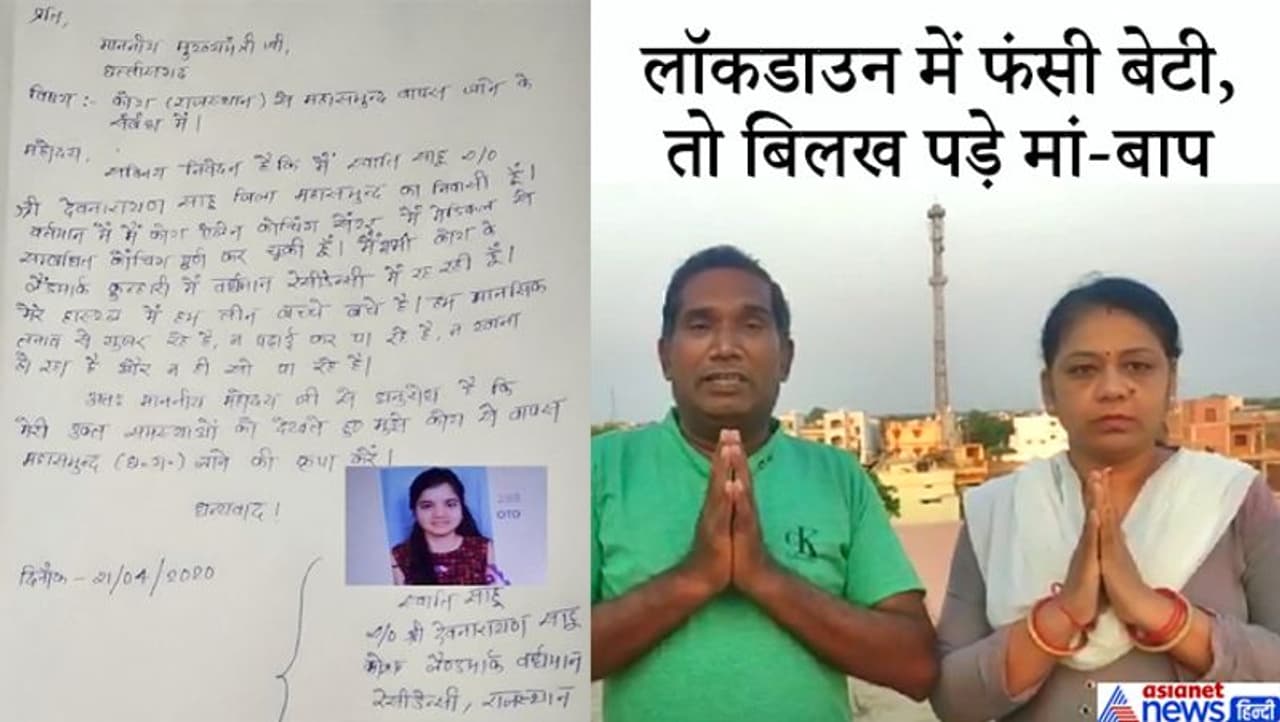 प्रति,
माननीय मुख्यमंत्री जी,
छत्तीसगढ़
विषय :- कोटा (राजस्थान) से महासमुन्द वापस जाने के
संबंध में।
महोदय,
सविनय निवेदन है कि मैं स्वाति साहू D/O
श्री देवनारायण साहू जिला महासमुन्द का निवासी हूँ।
वर्तमान में मैं कोटा एलेन कोचिंग सेंटर में मेडिकल से
सम्बंधित कोचिंग पूर्ण कर चुकी हूँ। मैं अभी कोटा के
लैंडमार्क कुन्हारी में वर्धमान रेसीडेन्सी में रह रही हूँ।
मेरे हास्टल में हम तीन बच्चे बचे है। हम मानसिक
तनाव से गुजर रहे है, न पढ़ाई कर पा रहे है, न खाना
हो रहा है और न ही सो पा रहे है।
अतः माननीय महोदय जी से अनुरोध है कि
मेरी उक्त समस्याओं को देखते हुए मुझे कोटा से वापस
महासमुन्द (छ.ग.) जाने की कृपा करें।
धन्यवाद।
दिनाँक - 21/04/2020
स्वाति साहू
D/O श्री देवनारायण साहू
कोटा लैण्डमार्क वर्धमान
रेसीडेन्सी, राजस्थान
लॉकडाउन में फंसी बेटी,
तो बिलख पड़े मां-बाप
CK
asianet
news हिन्दी